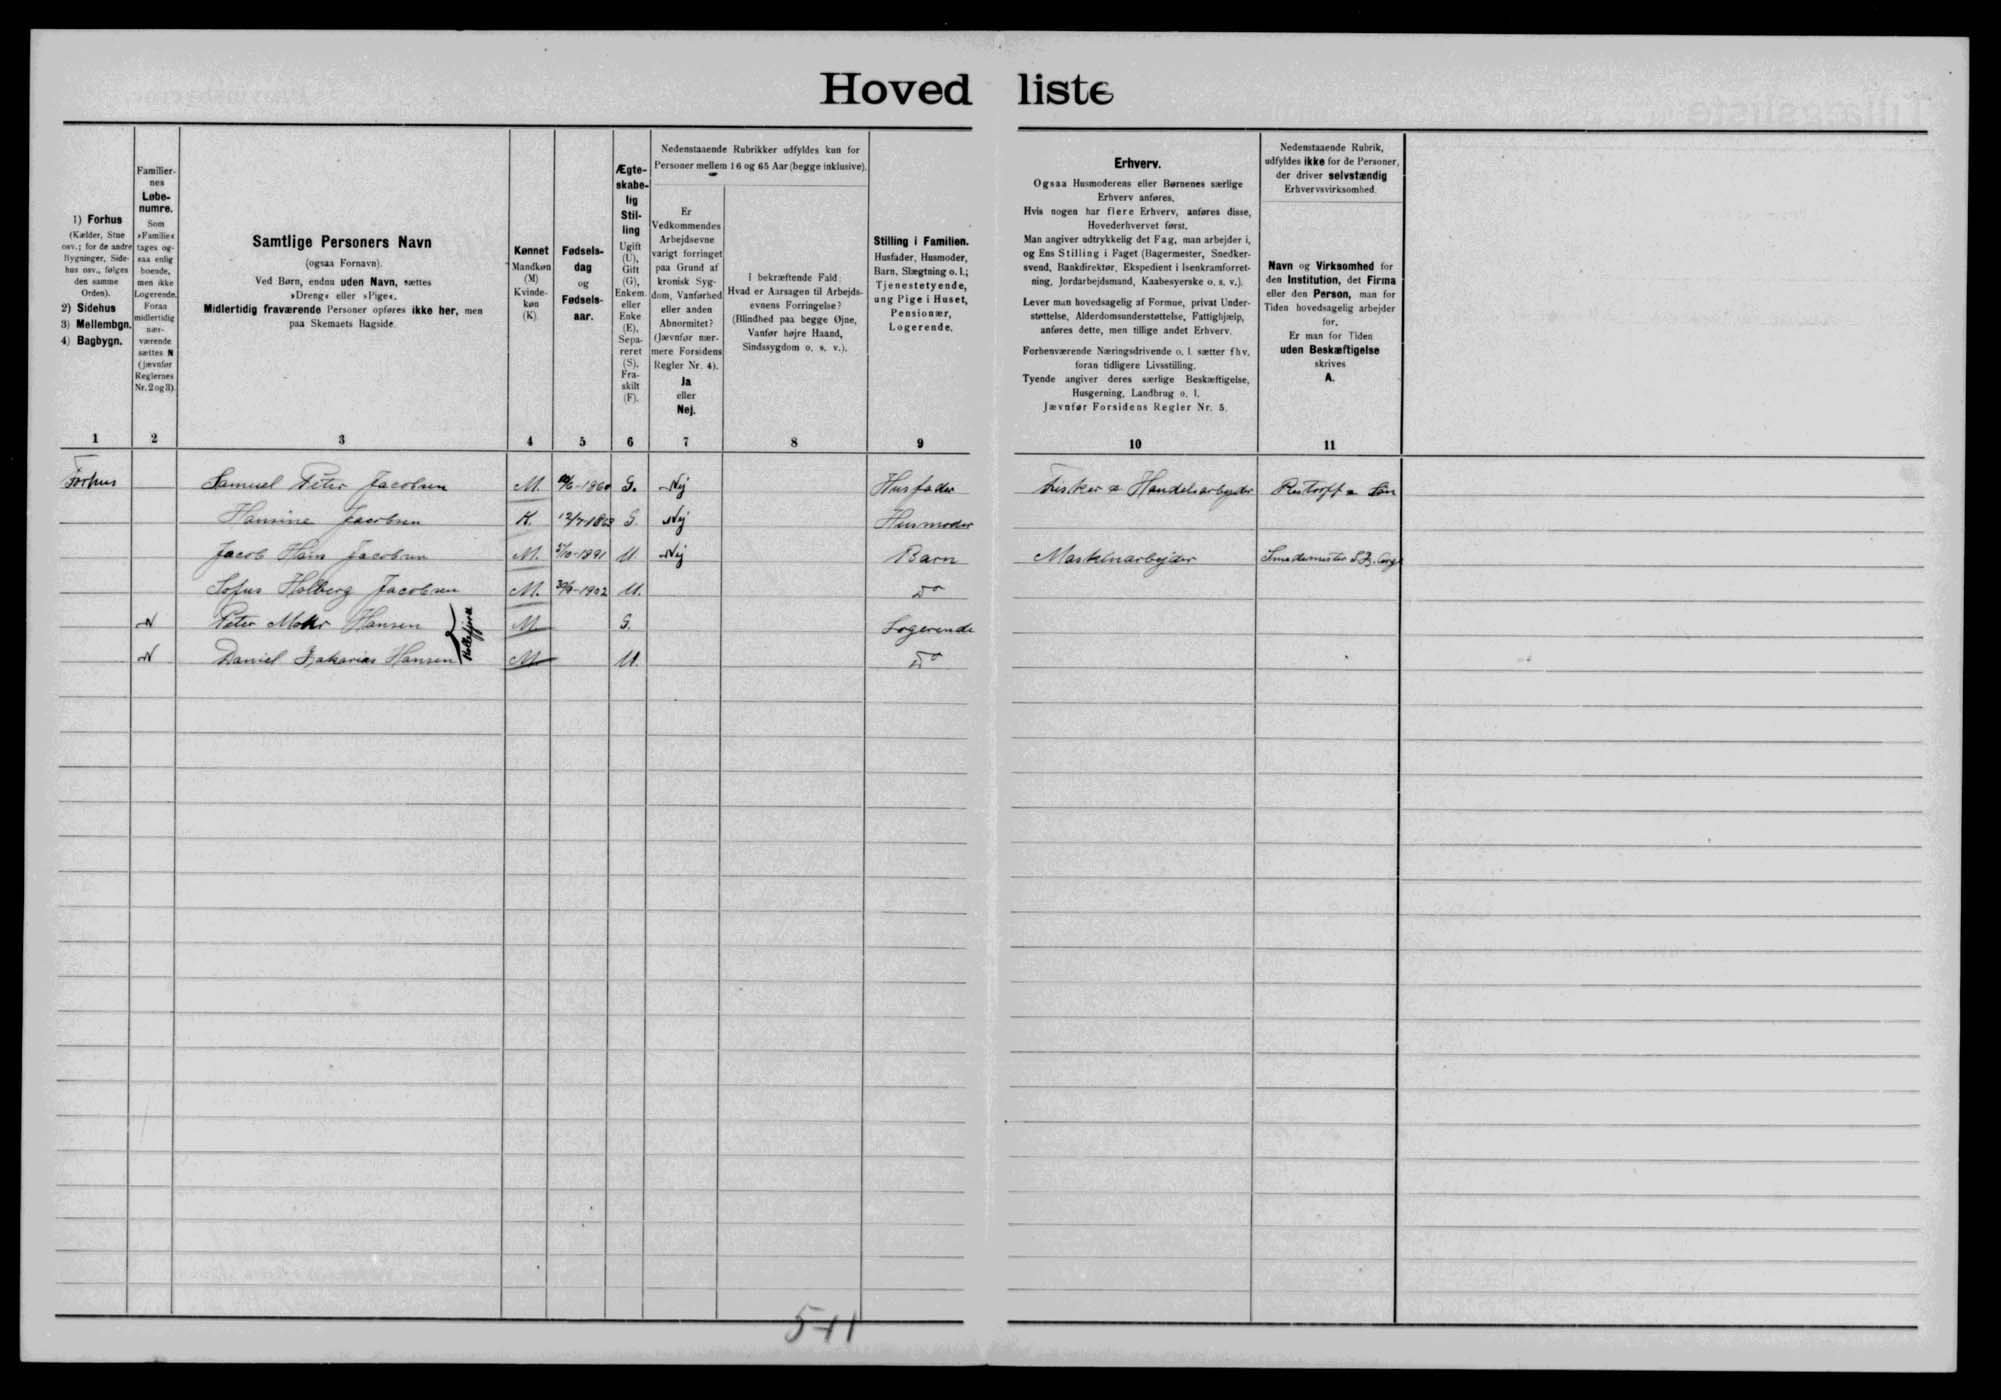 Hovedliste
1) Forhus
(Kælder, Stue
osv.; for de andre
Bygninger, Side-
hus osv., følges
den samme
Orden).
2) Sidehus
3) Mellembgn.
4) Bagbygn.
Familier-
nes
Løbe-
numre.
Som
»Familie«
tages og-
saa enlig
boende,
men ikke
Logerende.
Foran
midlertidig
nær-
værende
sættes N
(jævnfør
Reglernes
Nr. 2 og 3).
Samtlige Personers Navn
(ogsaa Fornavn).
Ved Børn, endnu uden Navn, sættes
»Dreng« eller »Pige«.
Midlertidig fraværende Personer opføres ikke her, men
paa Skemaets Bagside.
Kønnet
Mandkøn
(M)
Kvinde-
køn
(K).
Fødsels-
dag
og
Fødsels-
aar.
Ægte-
skabe-
lig
Stil-
ling
Ugift
(U),
Gift
(G),
Enkem.
eller
Enke
(E),
Sepa-
reret
(S),
Fra-
skilt
(F).
Nedenstaaende Rubrikker udfyldes kun for
Personer mellem 16 og 65 Aar (begge inklusive).
Er
Vedkommendes
Arbejdsevne
varigt forringet
paa Grund af
kronisk Syg-
dom, Vanførhed
eller anden
Abnormitet?
(Jævnfør nær-
mere Forsidens
Regler Nr. 4).
Ja
eller
Nej.
I bekræftende Fald:
Hvad er Aarsagen til Arbejds-
evnens Forringelse?
(Blindhed paa begge Øjne,
Vanfør højre Haand,
Sindssygdom o. s. v.).
Stilling i Familien.
Husfader, Husmoder,
Barn, Slægtning o. l.;
Tjenestetyende,
ung Pige i Huset,
Pensionær,
Logerende.
Erhverv.
Ogsaa Husmoderens eller Børnenes særlige
Erhverv anføres.
Hvis nogen har flere Erhverv, anføres disse,
Hovederhvervet først.
Man angiver udtrykkelig det Fag, man arbejder i,
og Ens Stilling i Faget (Bagermester, Snedker-
svend, Bankdirektør, Ekspedient i Isenkramforret-
ning, Jordarbejdsmand, Kaabesyerske o. s. v.).
Lever man hovedsagelig af Formue, privat Under-
støttelse, Alderdomsunderstøttelse, Fattighjælp,
anføres dette, men tillige andet Erhverv.
Forhenværende Næringsdrivende o. l. sætter fhv.
foran tidligere Livsstilling.
Tyende angiver deres særlige Beskæftigelse,
Husgerning, Landbrug o. l.
Jævnfør Forsidens Regler Nr. 5.
Nedenstaaende Rubrik,
udfyldes ikke for de Personer,
der driver selvstændig
Erhvervsvirksomhed.
Navn og Virksomhed for
den Institution, det Firma
eller den Person, man for
Tiden hovedsagelig arbejder
for.
Er man for Tiden
uden Beskæftigelse
skrives
A.
1 2 3 4 5 6 7 8 9 10 11
Forhus Samuel Peter Jacobsen M. G. Nej Husfader Fisker & Handelsarbejder Restorff & Søn
Hansine Jacobsen K. G. Nej Husmoder
Jacob Hans Jacobsen M. U Nej Barn Maskinarbejder Smedemester
Sofus Holberg Jacobsen M. U. Do
N Peter Mohr Hansen M G. Logerende
Kollefjord
N Daniel Zakarias Hansen M U. Do
511